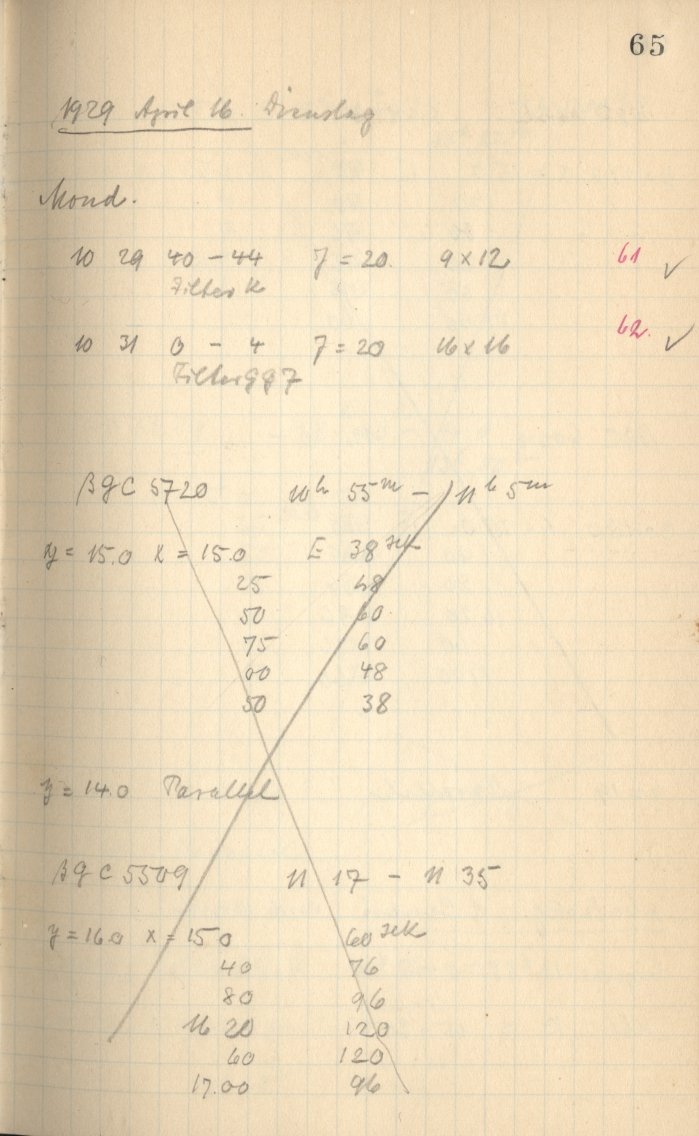 65
1929 April 16. Dienstag
Mond.
10 29 40 – 44 7 = 20. 9 x 12 61 ✓
Filter K
10 31 0 – 4 7 = 20 16 x 16 62. ✓
Filter GG 7
BGC 5720 10h 55m – 11h 5m
y = 15.0 x = 15.0 E 38 sek
25 48
50 60
75 60
00 48
50 38
y = 14.0 Parallel
BGC 5509 11 17 – 11 35
y = 16.0 x = 15 0 60 sek
40 76
80 96
16 20 120
60 120
17.00 96